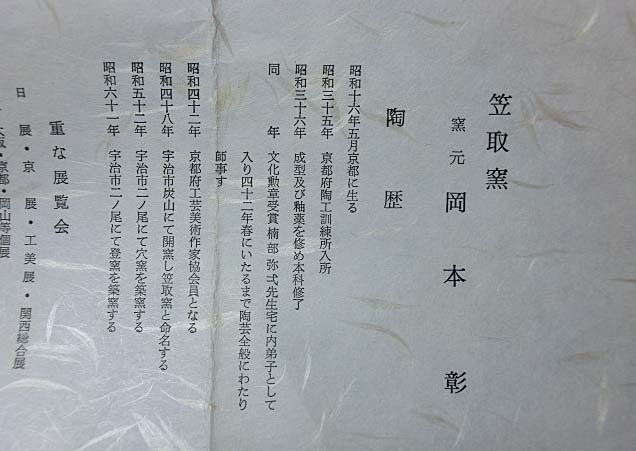 笠取窯
窯元 岡本 彰
陶歴
昭和十六年五月京都に生る
昭和三十五年 京都府陶工訓練所入所
昭和三十六年 成型及び釉薬を修め本科修了
同年 文化勲章受賞楠部弥弌先生宅に内弟子として
入り四十二年春にいたるまで陶芸全般にわたり
師事す
昭和四十二年 京都府工芸美術作家協会員となる
昭和四十八年 宇治市炭山にて開窯し笠取窯と命名する
昭和五十二年 宇治市二ノ尾にて穴窯を築窯する
昭和六十一年 宇治市二ノ尾にて登窯を築窯する
重な展覧会
日展・京展・工美展・関西総合展
大阪・京都・岡山等個展